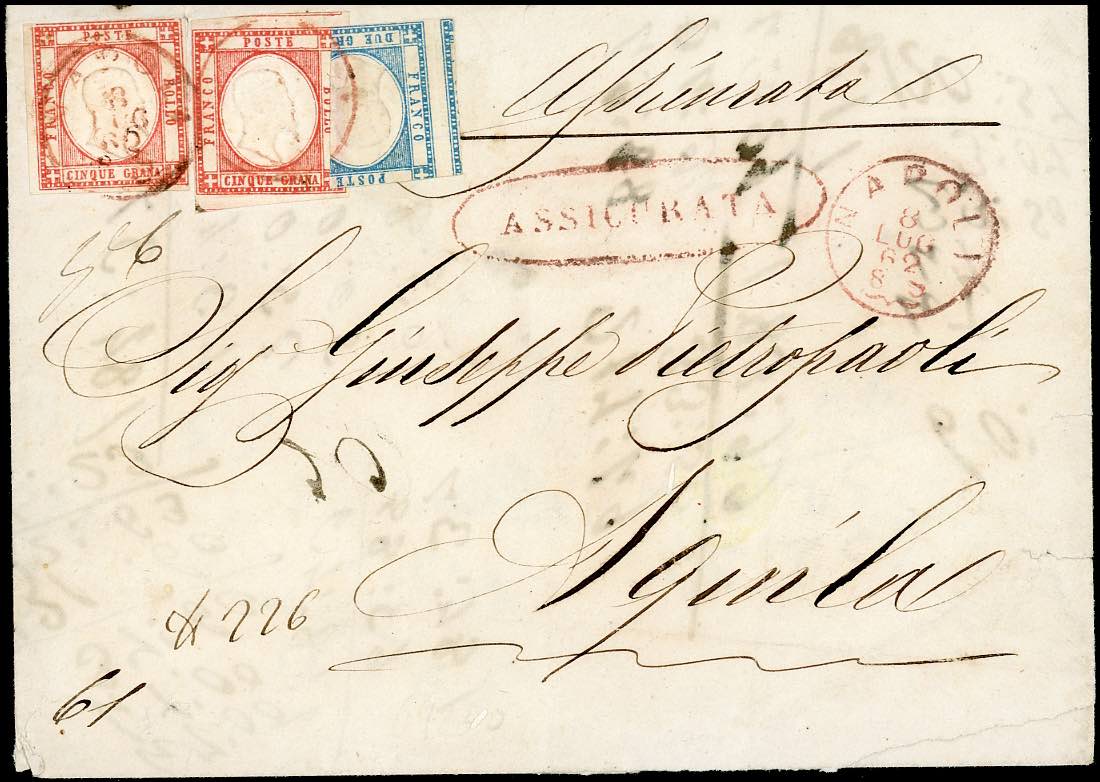 POSTE
FRANCO
BOLLO
CINQUE GRANA
POSTE
FRANCO
BOLLO
CINQUE GRANA
DUE GR
FRANCO
POSTE
Assicurata
ASSICURATA
NAPOLI
8
LUG
62
Sig Giuseppe Pietropaoli
Aquila
226
61